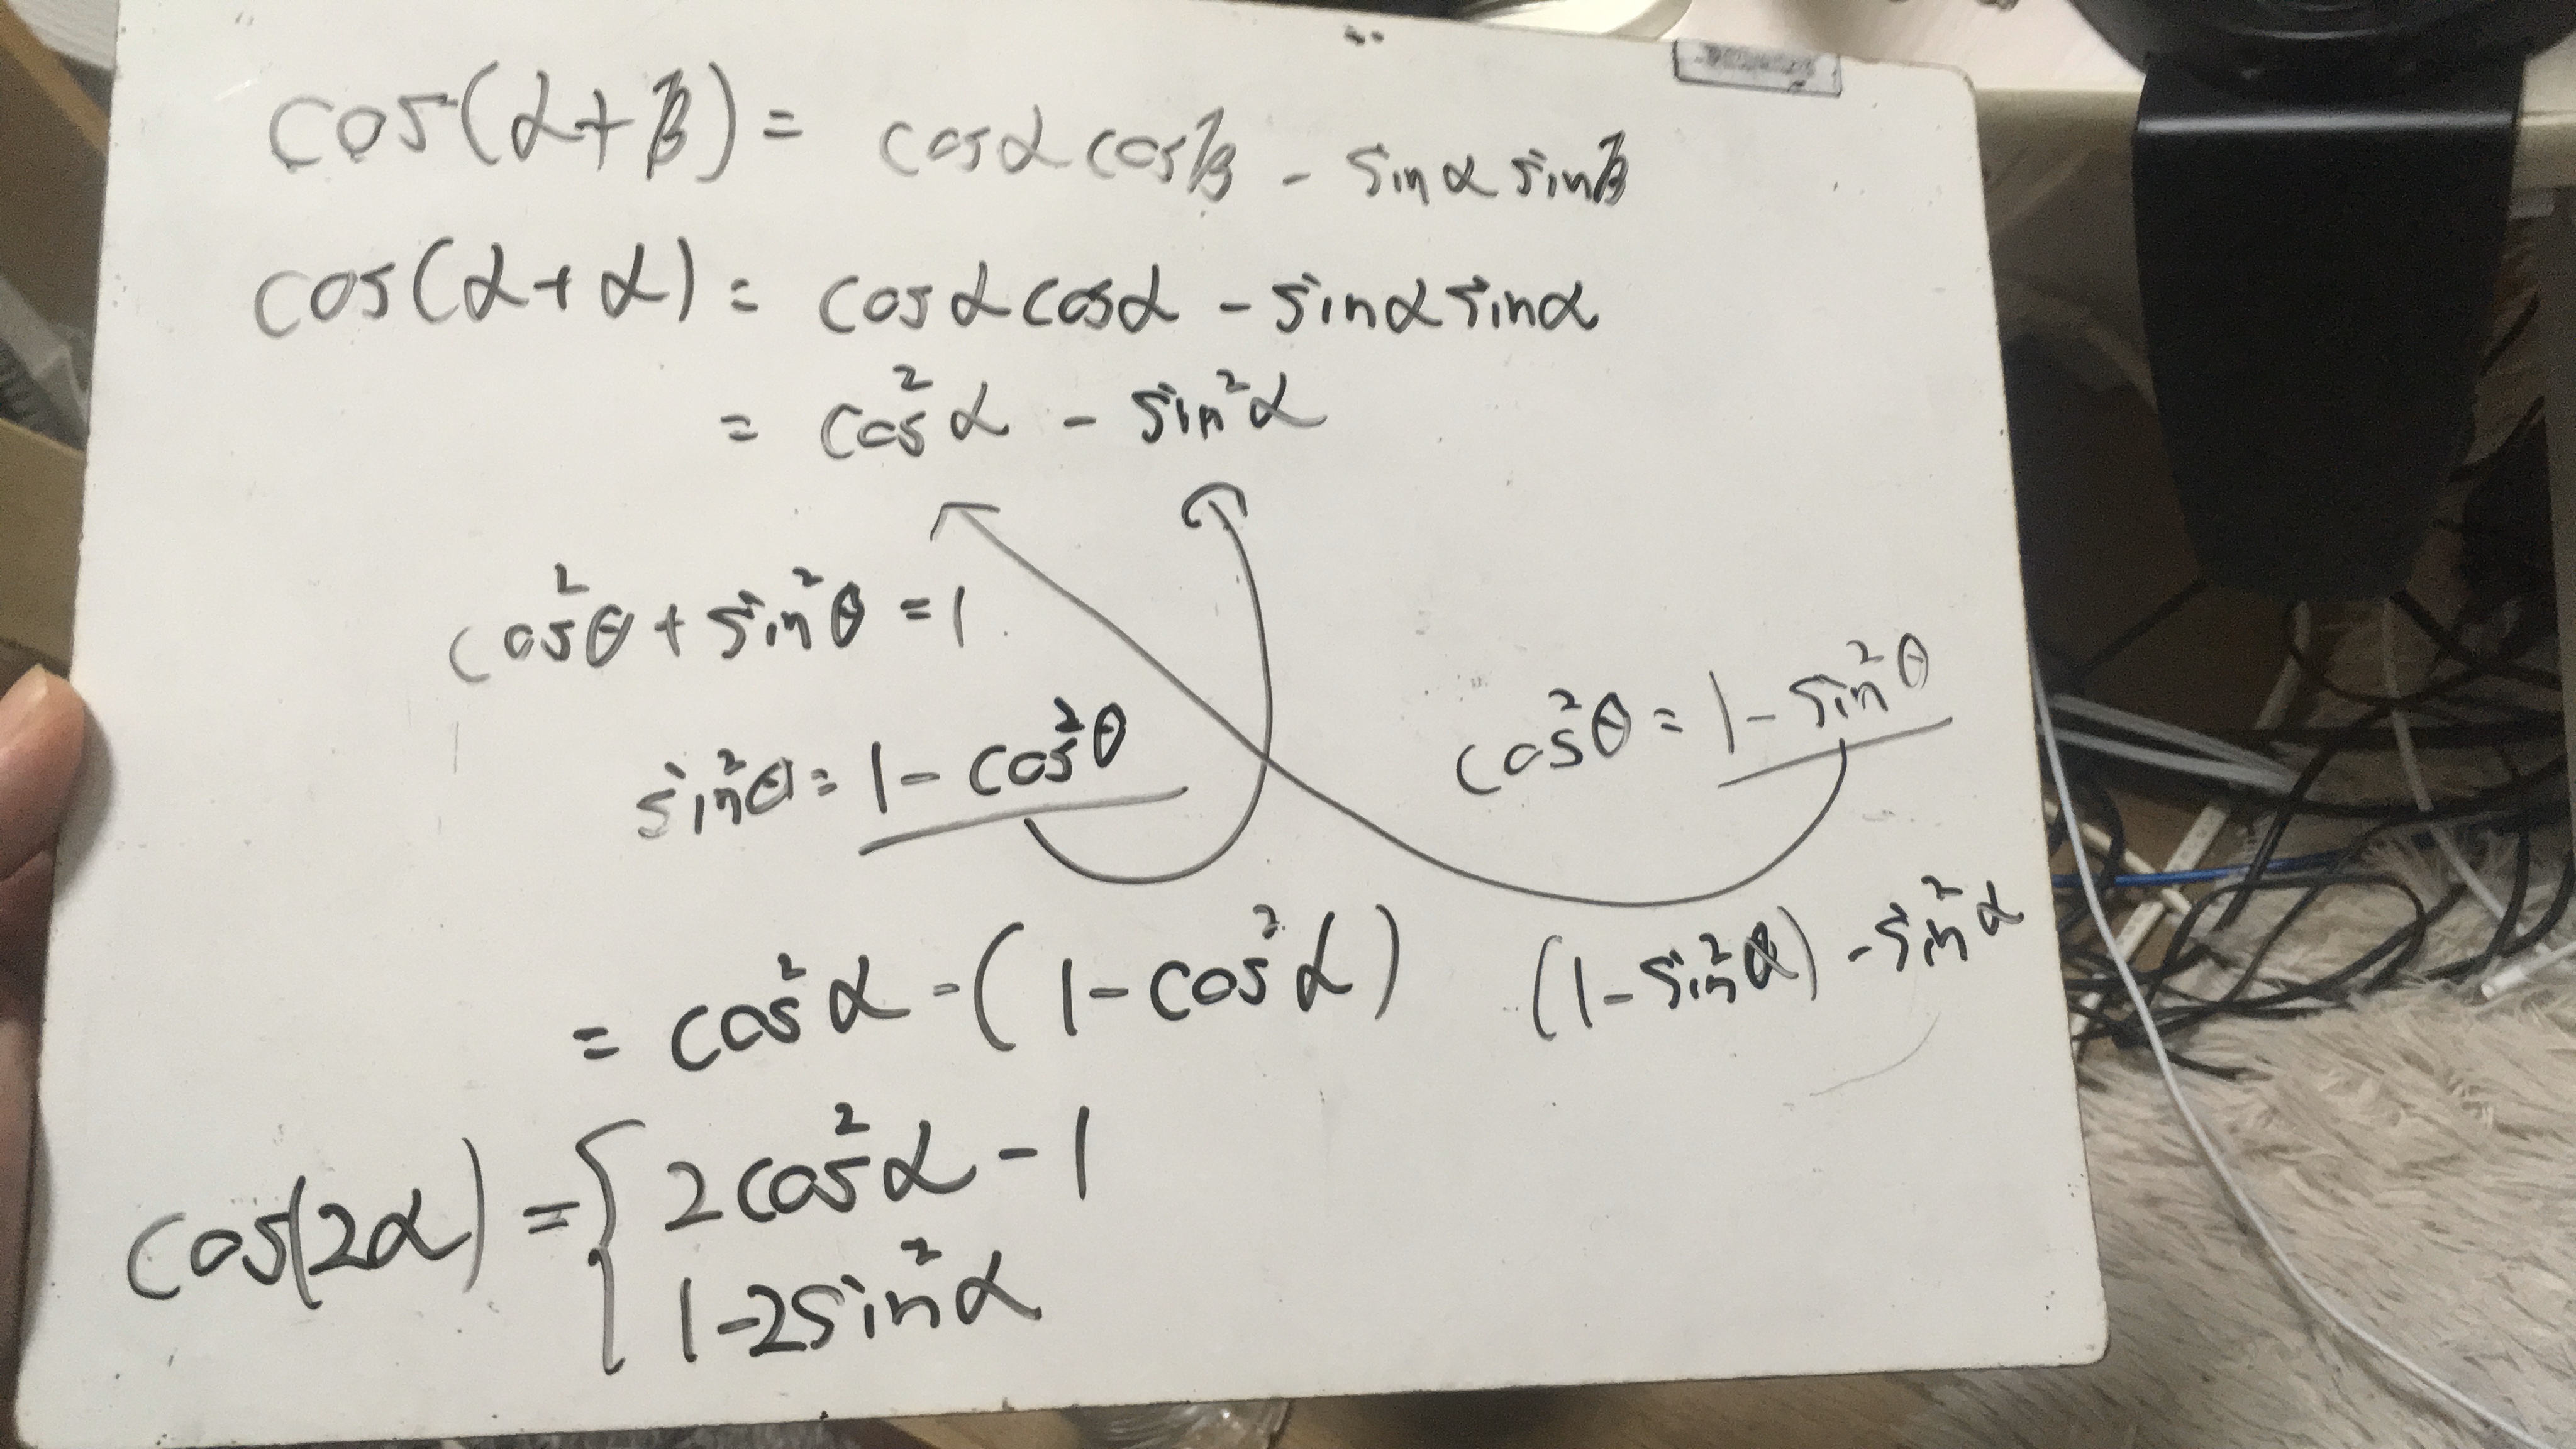 cos(α+β) = cosα cosβ - sinα sinβ
cos(α+α) = cosα cosα - sinα sinα
= cos²α - sin²α
cos²θ + sin²θ = 1
sin²θ = 1 - cos²θ
cos²θ = 1 - sin²θ
= cos²α - (1 - cos²α)
(1 - sin²α) - sin²α
cos(2α) = { 2cos²α - 1
1 - 2sin²α